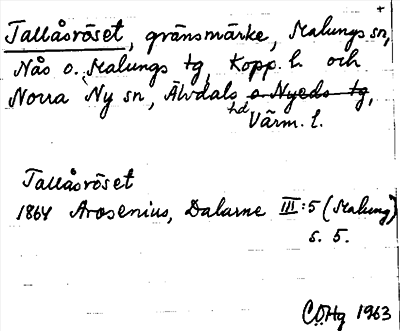 +
Tallåsröset, gränsmärke, Malungs sn,
Nås o. Malungs tg, Kopp. l. och
Norra Ny sn, Älvdals o. Nyeds tg,
hd
Värm. l.
Tallåsröset
1864 Arosenius, Dalarne III:5 (Malung)
s. 5.
COHg 1963